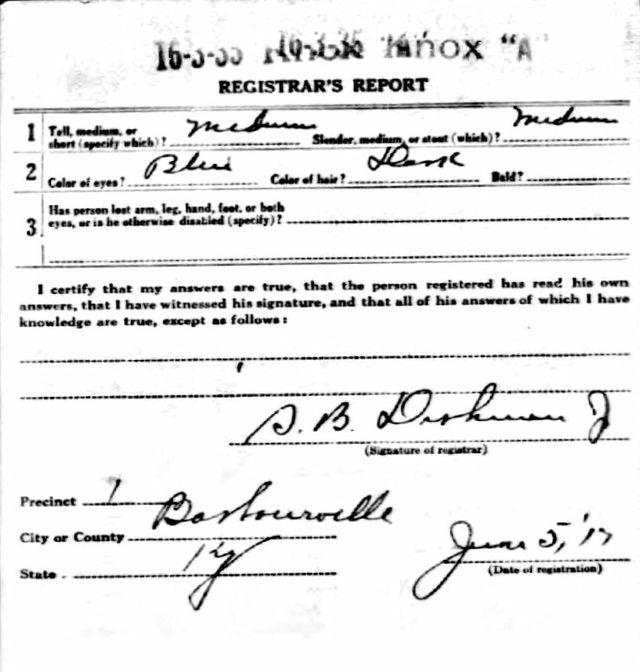 Knox "A"
REGISTRAR'S REPORT
1 Tall, medium, or short (specify which)? Medium Slender, medium, or stout (which)? Medium
2 Color of eyes? Blue Color of hair? Dark Bald?
3 Has person lost arm, leg, hand, foot, or both
eyes, or is he otherwise disabled (specify)?
I certify that my answers are true, that the person registered has read his own
answers, that I have witnessed his signature, and that all of his answers of which I have
knowledge are true, except as follows:
S. B. Dishman Jr
(Signature of registrar)
Precinct 1
City or County Barbourville
State Ky
June 5, '17
(Date of registration)